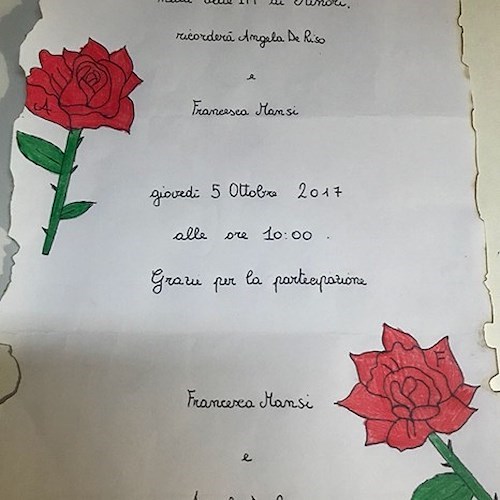 ricorderà Angela De Riso
e
Francesca Mansi
giovedì 5 Ottobre 2017
alle ore 10:00.
Grazie per la partecipazione
Francesca Mansi
e
A
F